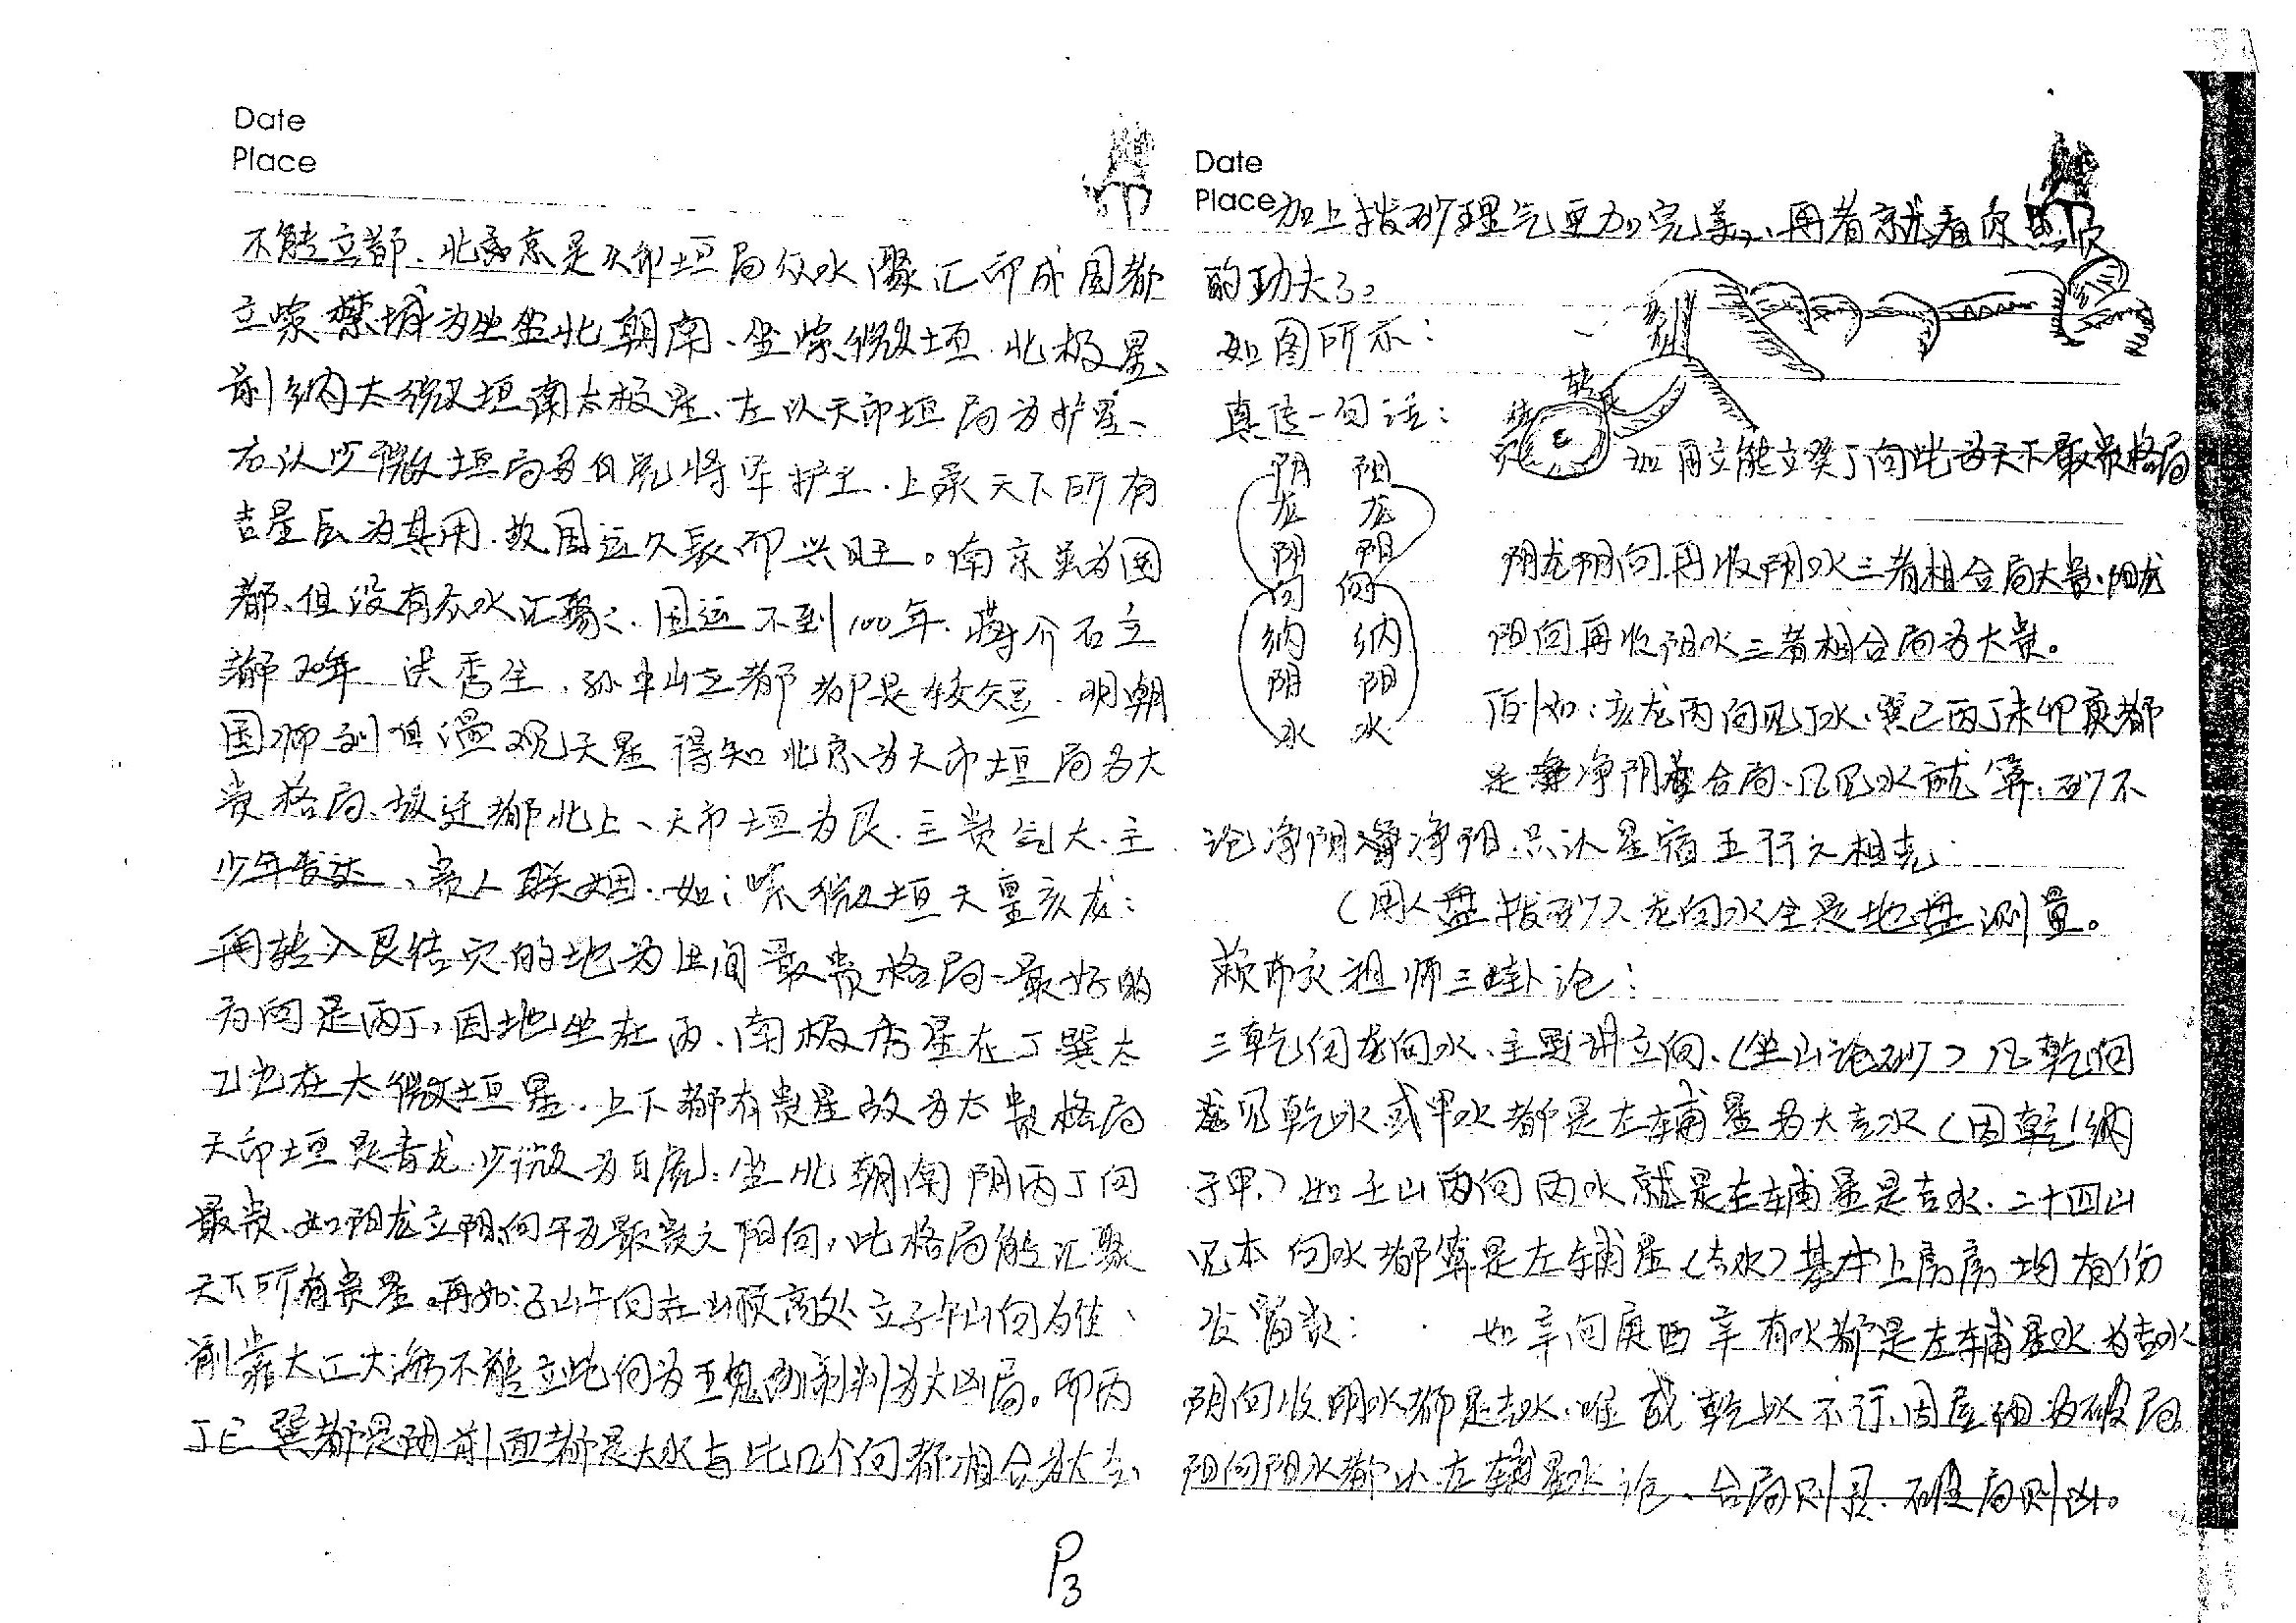 Date
Place
不能立都、北京是天市垣局众水聚汇而成国都
立紫禁城为坐北朝南、坐紫微垣北极星、
前纳太微垣南太极星、左以天市垣局为护星、
右以少微垣局为白虎将军护卫、上承天下所有
吉星辰为其用、故国运久长而兴旺。南京虽为国
都、但没有众水汇聚、国运不到100年、蒋介石立
都20年 洪秀全、孙中山立都都是较短、明朝
国师刘伯温观天星得知北京为天市垣局为大
贵格局、故迁都北上、天市垣为艮、主贵气大、主
少年发达、贵人联姻、如：紫微垣天皇亥龙：
再转入艮结穴的地为世间最贵格局、最好的
方向是丙丁，因地坐在丙、南极寿星在丁巽太
乙也在太微垣星、上下都有贵星故为大贵格局
天市垣是青龙、少微为白虎、坐北朝南阴丙丁向
最贵、如阳龙立阳向午为最贵之阳向，此格局能汇聚
天下所有贵星。再如：子山午向在山顶高处立子午山向为佳、
前靠大江大海不能立此向为判为大凶局。而丙
丁巳巽都是阴前面都是大水与此几个向都相合为大吉
Date
Place
加上拨砂理气更加完美、再者就看点
的功夫了。
如图所示：
真传一句话：
转艮
加用立能立巽丁向此为天下最贵格局
阴龙阴向纳阴水
阳龙阳向纳阳水
阴龙阴向再收阴水三者相合局大贵、阳龙
阳向再收阳水三者相合局为大贵。
例如：亥龙丙向见丁水、巽巳丙丁未卯庚都
是净阴合局、凡见水就算、砂不
论净阴净阳、只认星宿五行之相克
（用人盘拨砂）龙向水全是地盘测量。
赖布衣祖师三卦论：
三乾向龙向水、主要讲立向、（坐山论砂）凡乾向
龙见乾水或甲水都是左辅星为大吉水（因乾纳
于甲）如壬山丙向丙水就是左辅星是吉水、二十四山
见本向水都算是左辅星（吉水）基本上房房均有份
发富贵： 如辛向庚酉辛有水都是左辅星水为吉水
阴向收阴水都是吉水、唯戌乾水不行、因为破局
阳向阳水都以左辅星水论、合局则吉、破局则凶。
P3